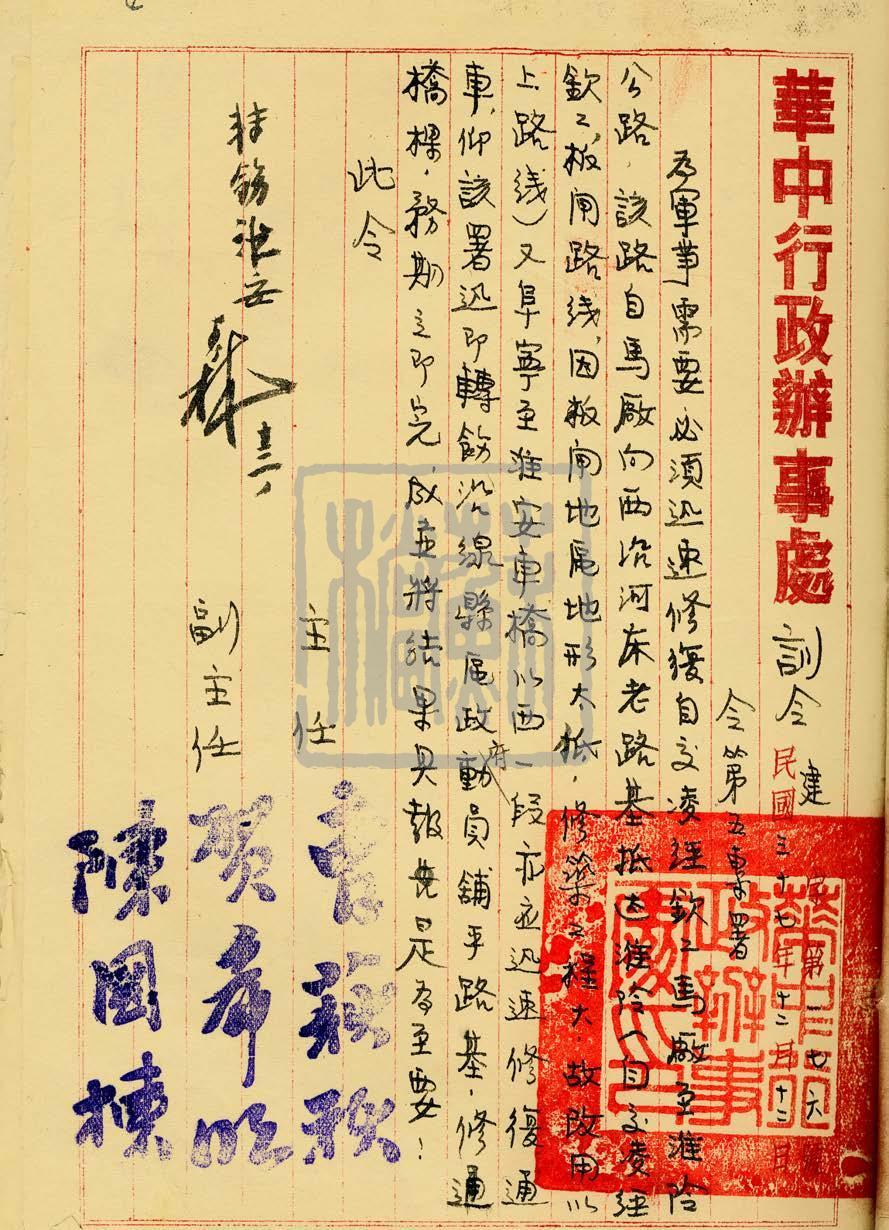 華中行政辦事處 訓令 建字第二七六號
民國三十七年十二月十二日
令第五專署
為軍事需要必須迅速修復自交凌經欽工馬廠至淮陰
公路,該路自馬廠向西沿河床老路基抵达淮陰(自交凌經
欽工,板闸路线,因板闸地屬地形太抵,修築工程大,故改用以
上路线)又阜寧至淮安車橋以西一段亦应迅速修復通
車,仰該署迅即轉飭沿線縣區政府動員舖平路基,修通
橋樑,務期立即完成並將結果具報是為至要!
此令
主任 曹荻秋
副主任 賀希明
陳國棟
转飭淮安
華中行政辦事處之印